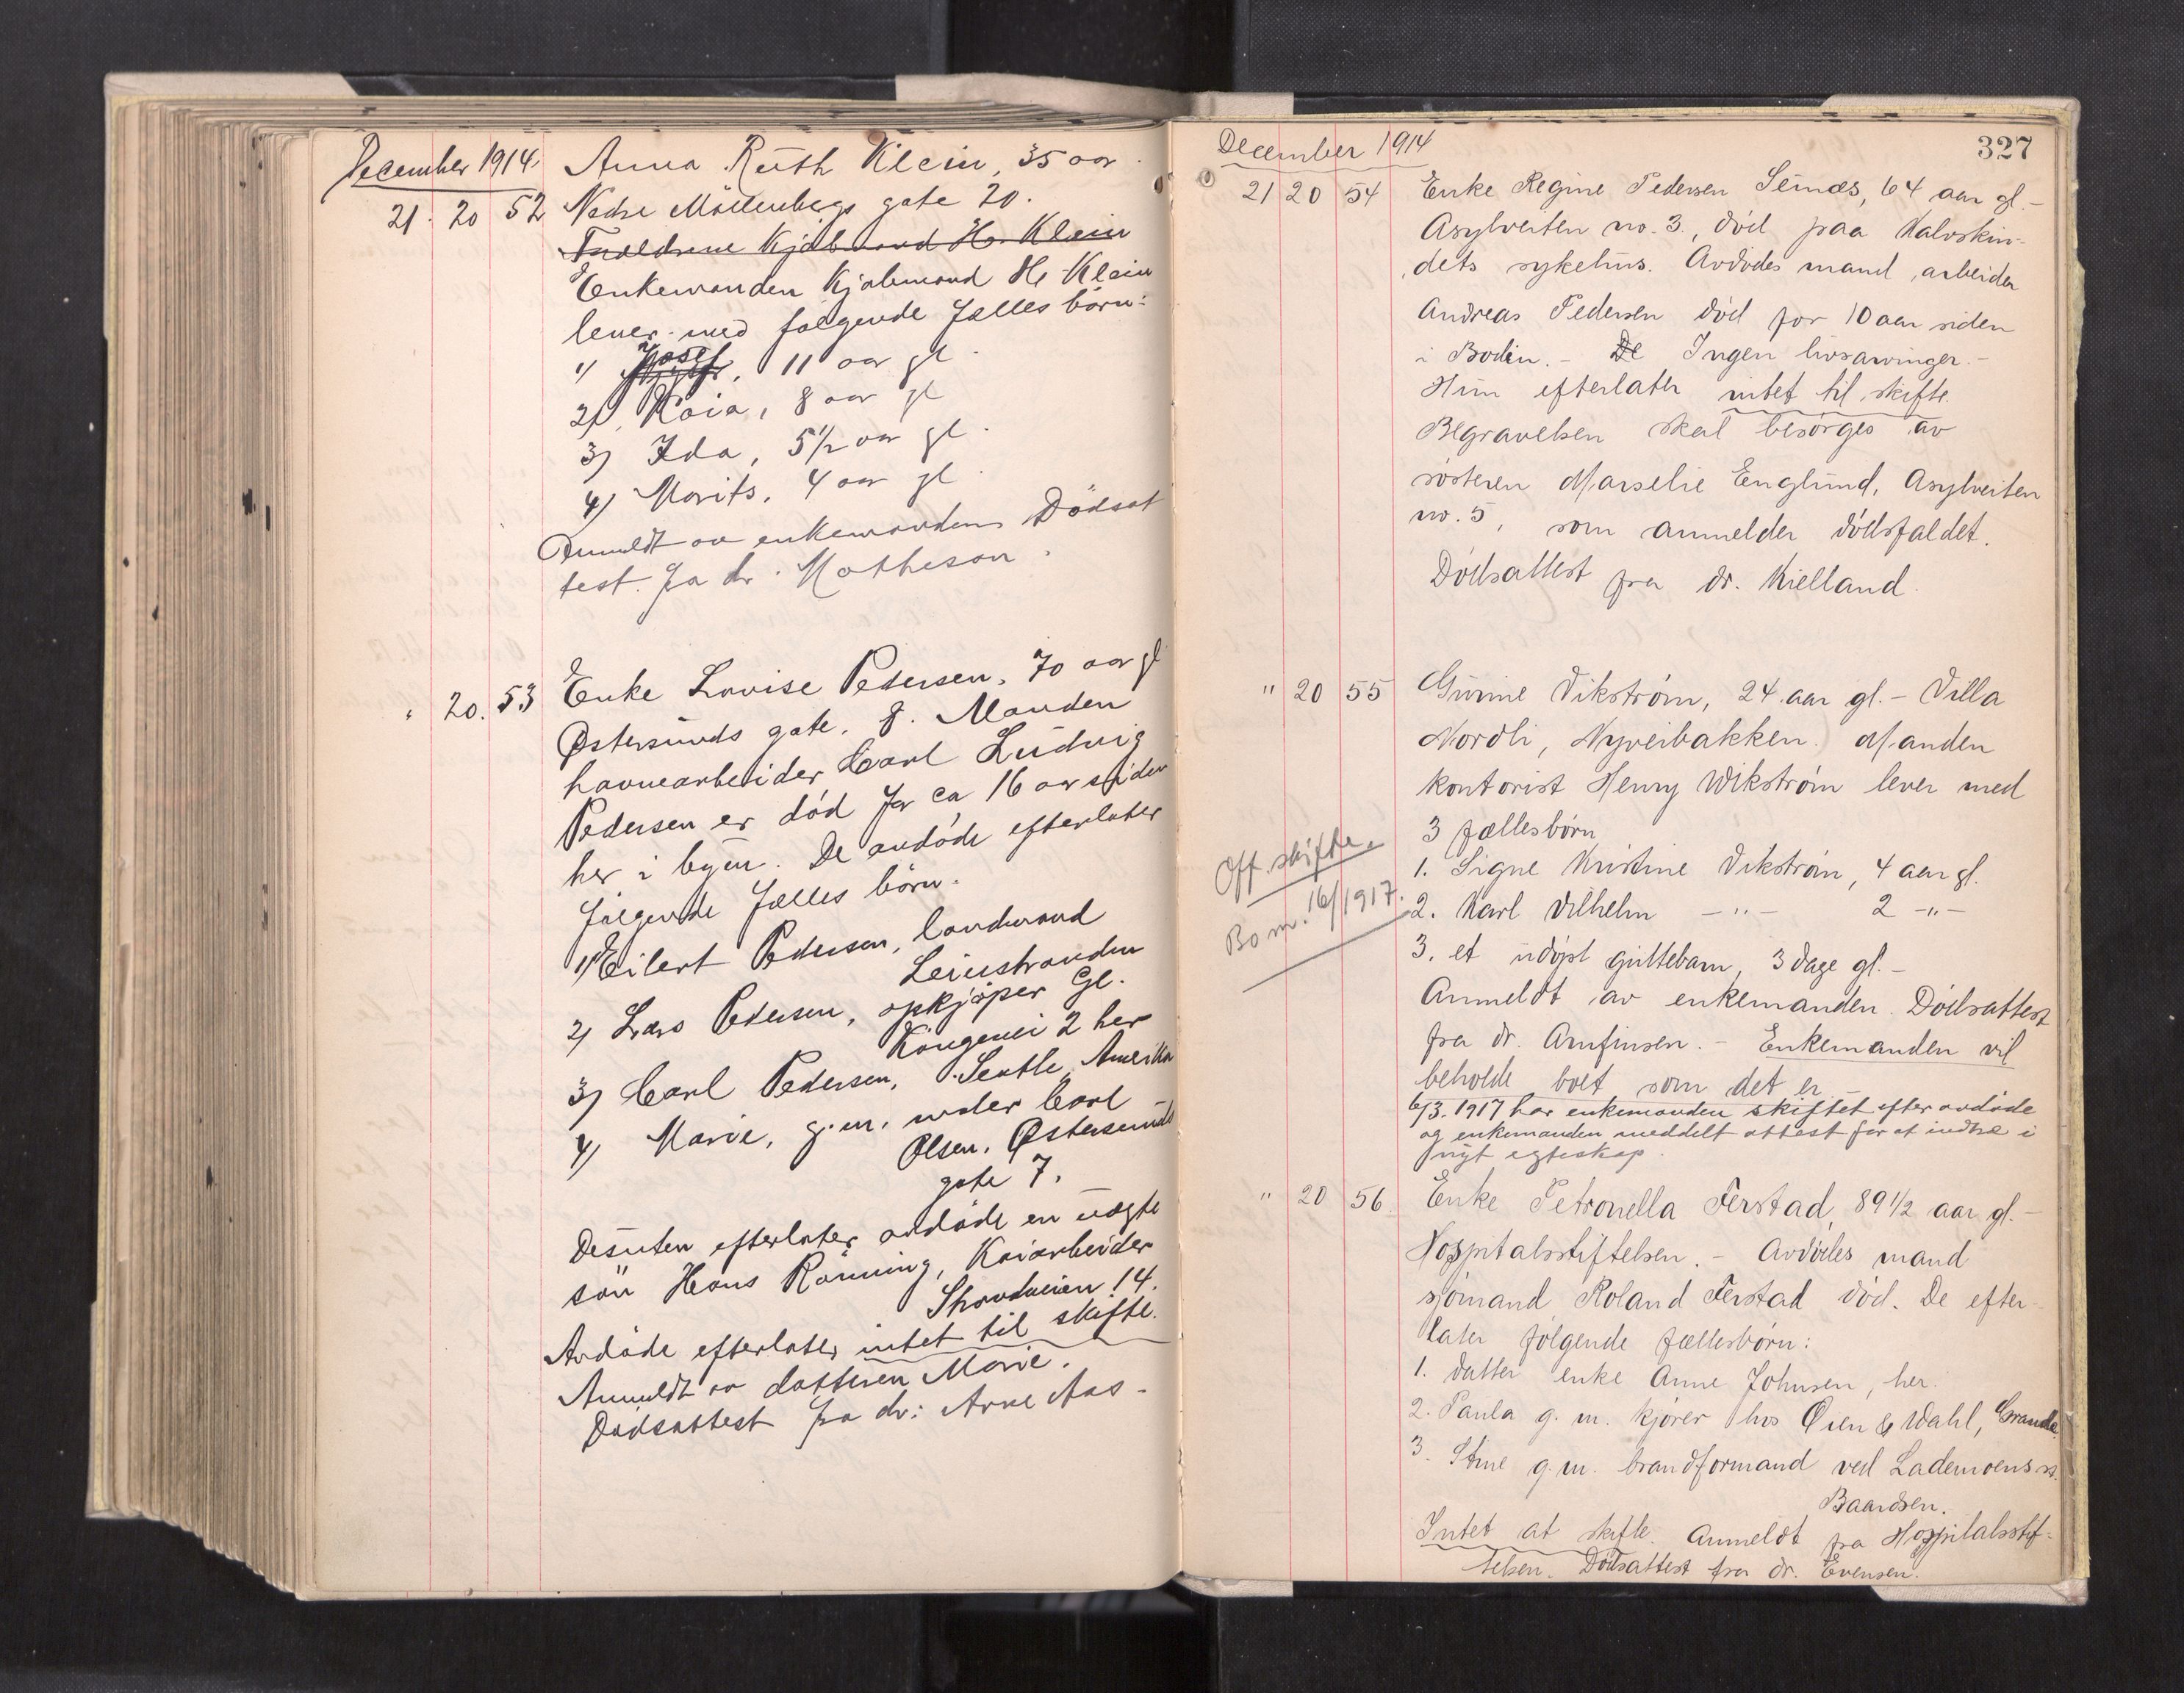 December 1914
Anna Ruth Klein, 35 aar
21. 20 52 Nedre Möllenbergs gate 20.
Forældrene Kjøbmand H. Klein
Enkemanden Kjøbmand H. Klein
lever med følgende fælles børn:
1) Josef, 11 aar gl
2) Kaia, 8 aar gl
3) Ida, 5½ aar gl.
4) Morits, 4 aar gl.
Anmeldt av enkemanden Dödsat
test. fra dr. Matheson.
" 20. 53 Enke Lovise Pedersen, 70 aar gl
Østersunds gate. 8. Manden
havnearbeider Carl Ludvig
Pedersen er död for ca 16 aar siden
her i byen. De avdöde efterlater
følgende fælles börn.
1) Eilert Pedersen, landmand
Leinstranden
2) Lars Pedersen, opkjöper Gl.
Kongevei 2 her
3) Carl Pedersen, Seatle, Amerika
4) Marie, g.m. maler Carl
Olsen, Østersunds
gate 7.
Desuten efterlater avdöde en uægte
sön Hans Rönning, Kaiarbeider
Strandveien 14.
Avdöde efterlater intet til skifte.
Anmeldt av datteren Marie.
Dødsattest fra dr: Arne Aas.
December 1914
327
21 20 54 Enke Regine Pedersen Semæs, 64 aar gl.-
Asylveiten no. 3, død paa Kalvskin-
dets sykehus. Avdødes mand, arbeider
Andreas Pedersen død for 10 aar siden
i Bodin. - De Ingen livsarvinger.-
Hun efterlater intet til skifte.
Begravelsen skal besørges av
søsteren Marselie Englund, Asylveiten
no. 5, som anmelder dødsfaldet.
Dødsattest fra dr. Kielland.
" 20 55 Gunine Vikstrøm, 24 aar gl. - Villa
Nordli, Nyveibakken. Manden
kontorist Henry Wikstrøm lever med
3 fællesbørn
Off. skifte.
1. Signe Kristine Vikstrøm, 4 aar gl.
Bo nr. 16/1917.
2. Karl Vilhelm -"- 2 -"-
3. et udøpt guttebarn, 3 dage gl.-
Anmeldt av enkemanden. Dødsattest
fra dr. Arnfinsen. - Enkemanden vil
beholde boet som det er.-
6/3. 1917 har enkemanden skiftet efter avdöde
og enkemanden meddelt attest for at indtræ i
nyt egteskap.
" 20 56. Enke Petronella Ferstad, 89 1/2 aar gl.-
Hospitalsstiftelsen. - Avdødes mand
sjømand Roland Ferstad død. De efter-
later følgende fællesbørn:
1. datter enke Anne Johnsen, her.
2. Paula g. m. kjører hos Øien & Wahl, Grande.
3. Stine g. m. brandformand ved Lademoens st.
Baardsen.
Intet at skifte. Anmeldt fra Hospitalsstif-
telsen. Dødsattest fra dr. Evensen.